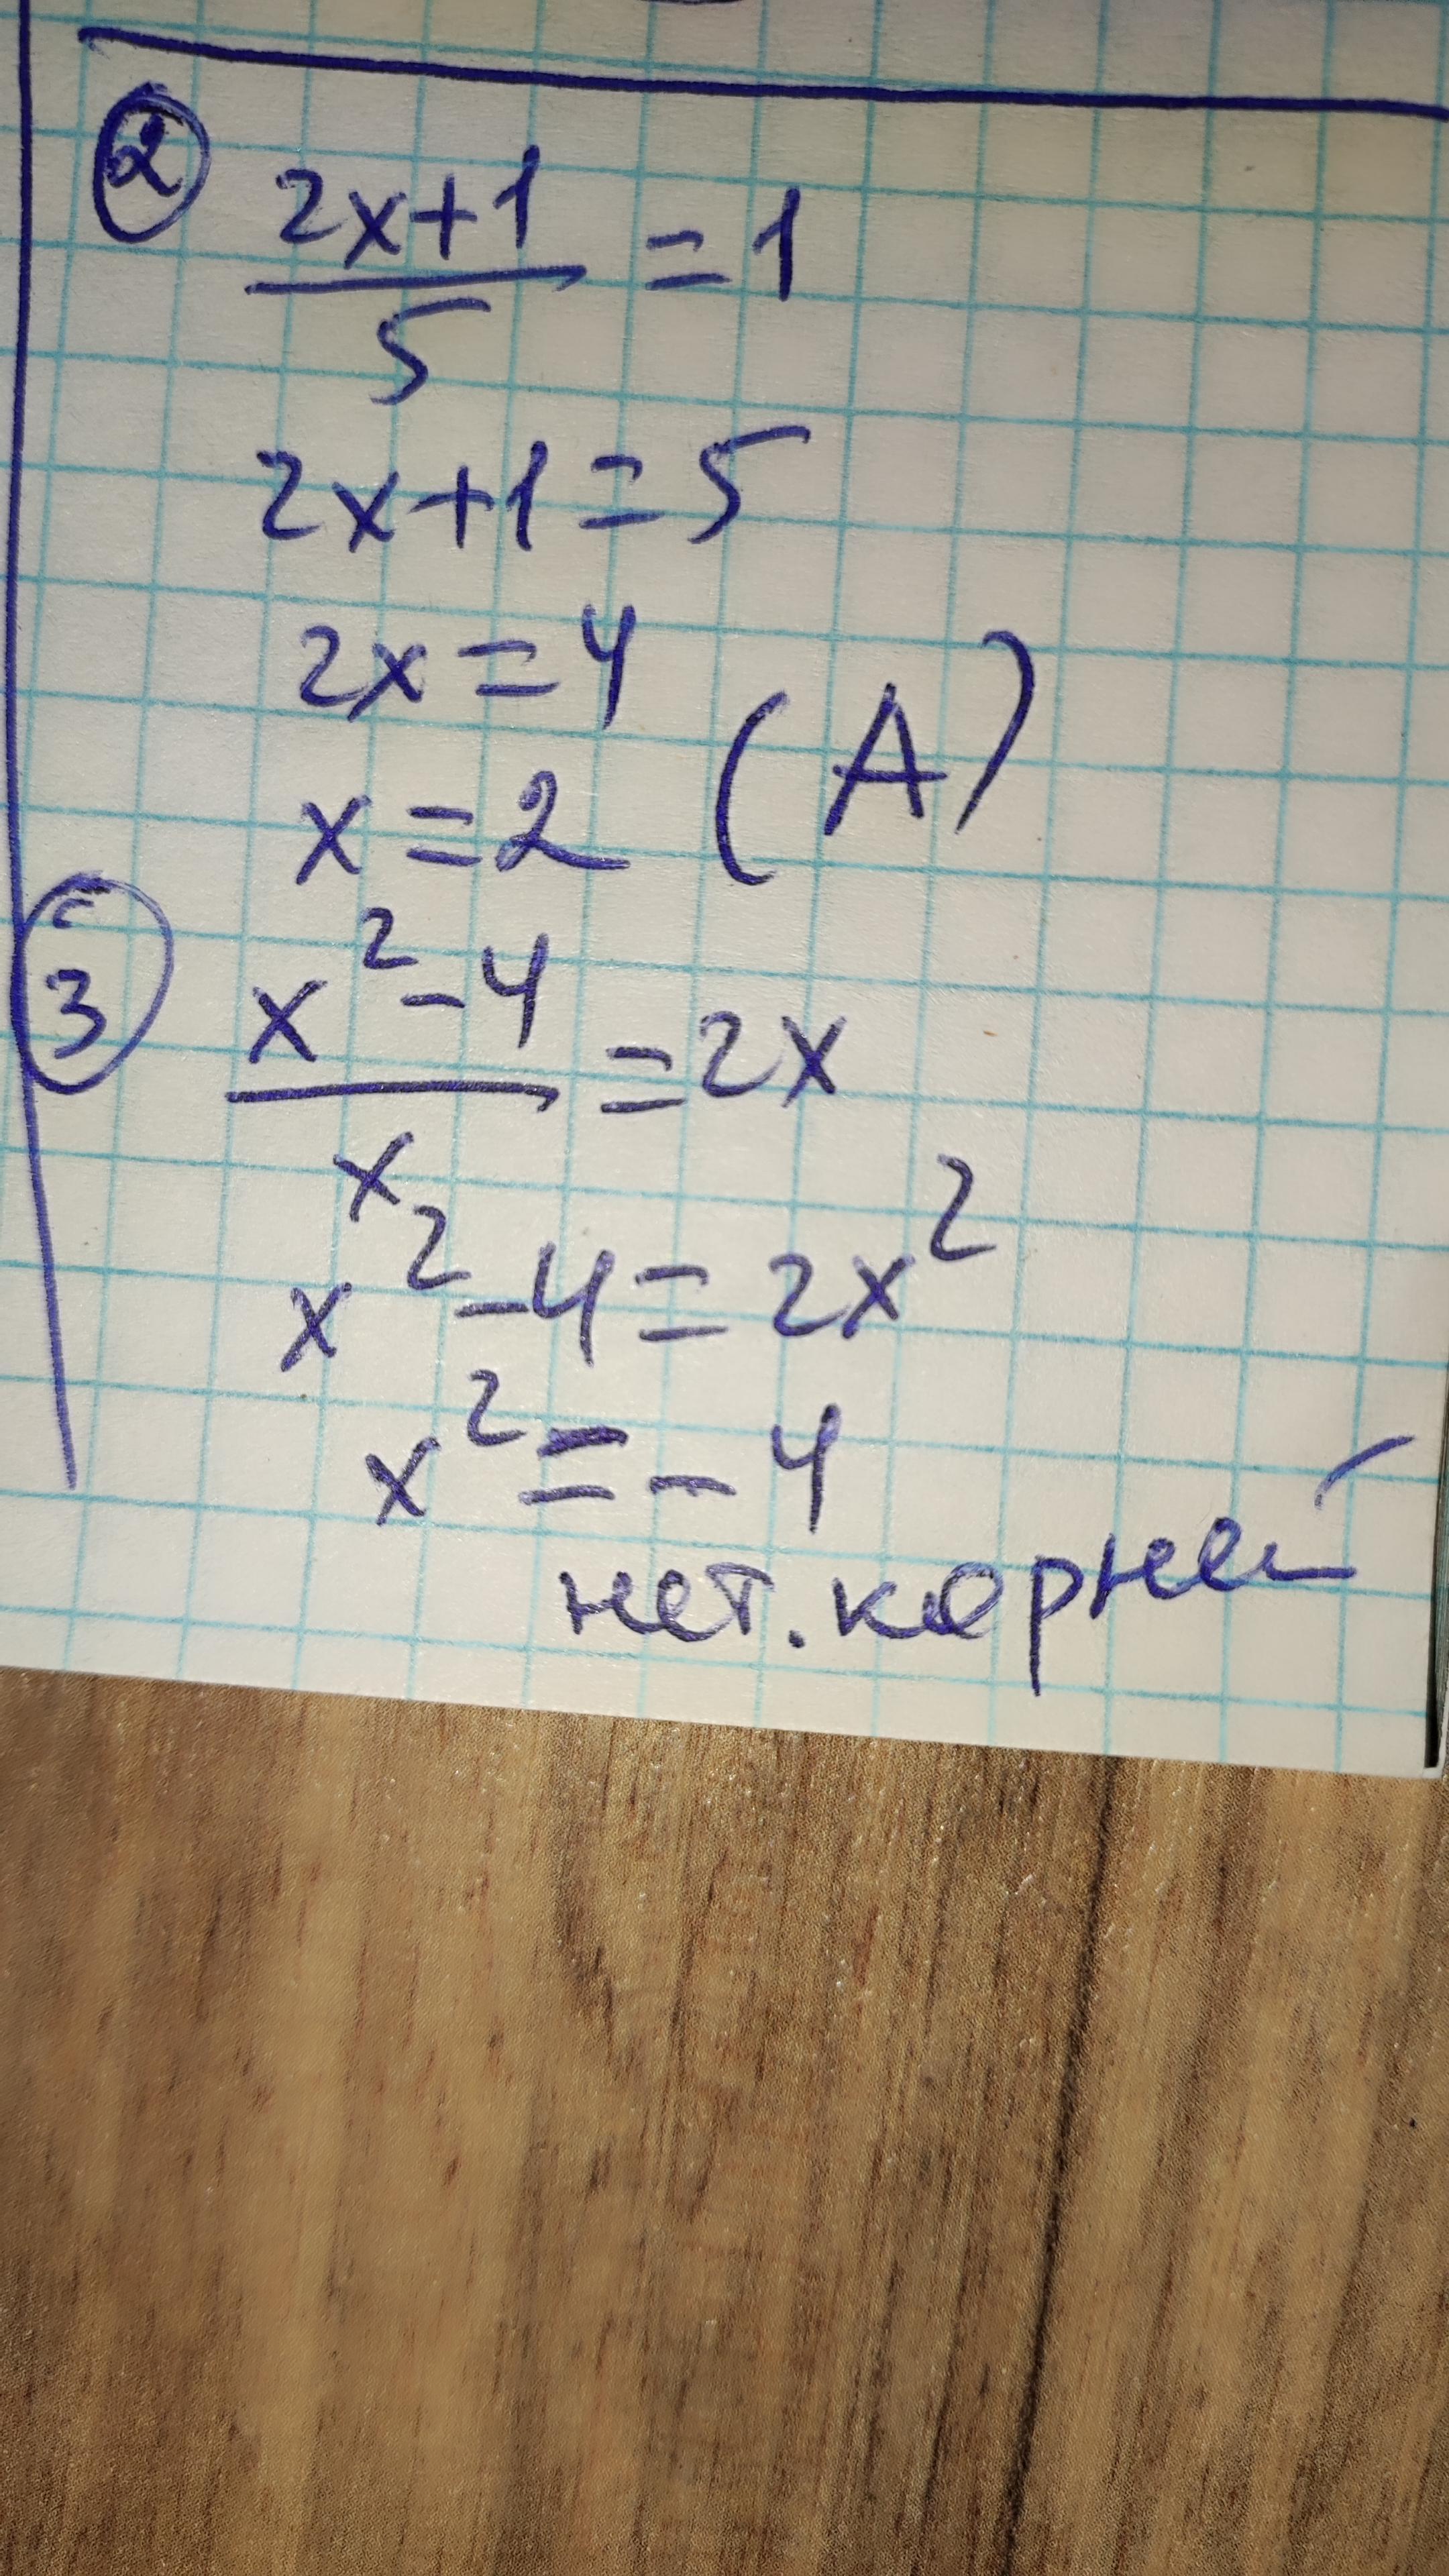 ② (2x+1)/5 = 1
2x+1=5
2x=4
x=2 (A)
③ (x²-4)/x = 2x
x²-4=2x²
x²=-4
нет. корней